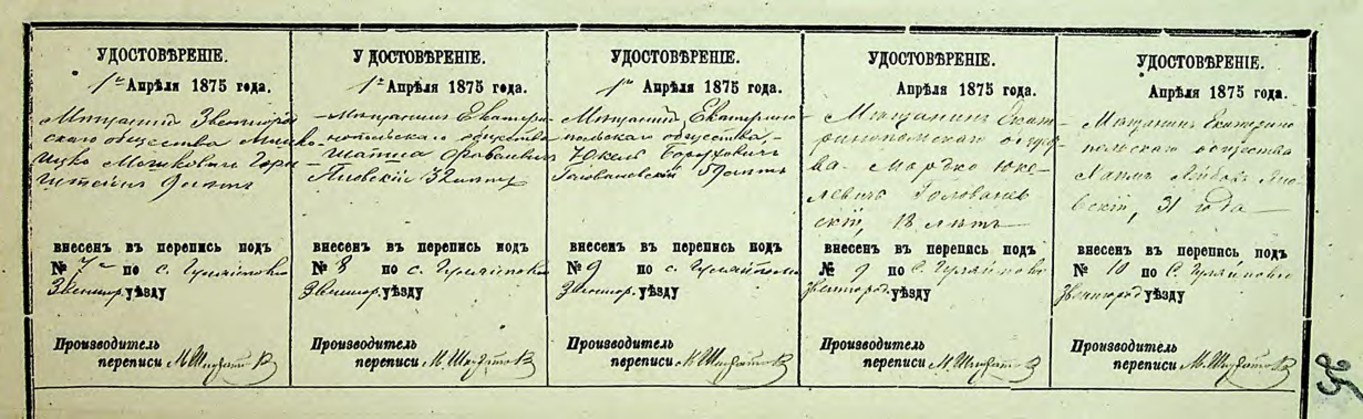 УДОСТОВѢРЕНІЕ.
1го Апрѣля 1875 года.
Мѣщанинъ Звенигород-
скаго общества
Ицко Мошковичъ
внесенъ въ перепись подъ
№ 7 по с. Гуляйполю
Звенигор. уѣзду
Производитель
переписи М.
УДОСТОВѢРЕНІЕ.
1го Апрѣля 1875 года.
Мѣщанинъ Екатери-
нопольскаго общества
32 лѣтъ
внесенъ въ перепись подъ
№ 8 по с. Гуляйполю
Звенигор. уѣзду
Производитель
переписи М.
УДОСТОВѢРЕНІЕ.
1го Апрѣля 1875 года.
Мѣщанинъ Екатерино-
польскаго общества,
Юкель Борухвичъ
Головановскій 39 лѣтъ
внесенъ въ перепись подъ
№ 9 по с. Гуляйполю
Звенигор. уѣзду
Производитель
переписи М.
УДОСТОВѢРЕНІЕ.
Апрѣля 1875 года.
Мѣщанинъ Екате-
ринопольскаго общес-
ва Мордко Юке-
левичъГолованев-
скій, 18 лѣтъ
внесенъ въ перепись подъ
№ 9 по с. Гуляйполю
Звенигород. уѣзду
Производитель
переписи М.
УДОСТОВѢРЕНІЕ.
Апрѣля 1875 года.
Мѣщанинъ Екатерино
польскаго общества
Хаимъ Лейбовъ
31 года
внесенъ въ перепись подъ
№ 10 по с. Гуляйполю
Звенигород. уѣзду
Производитель
переписи М.